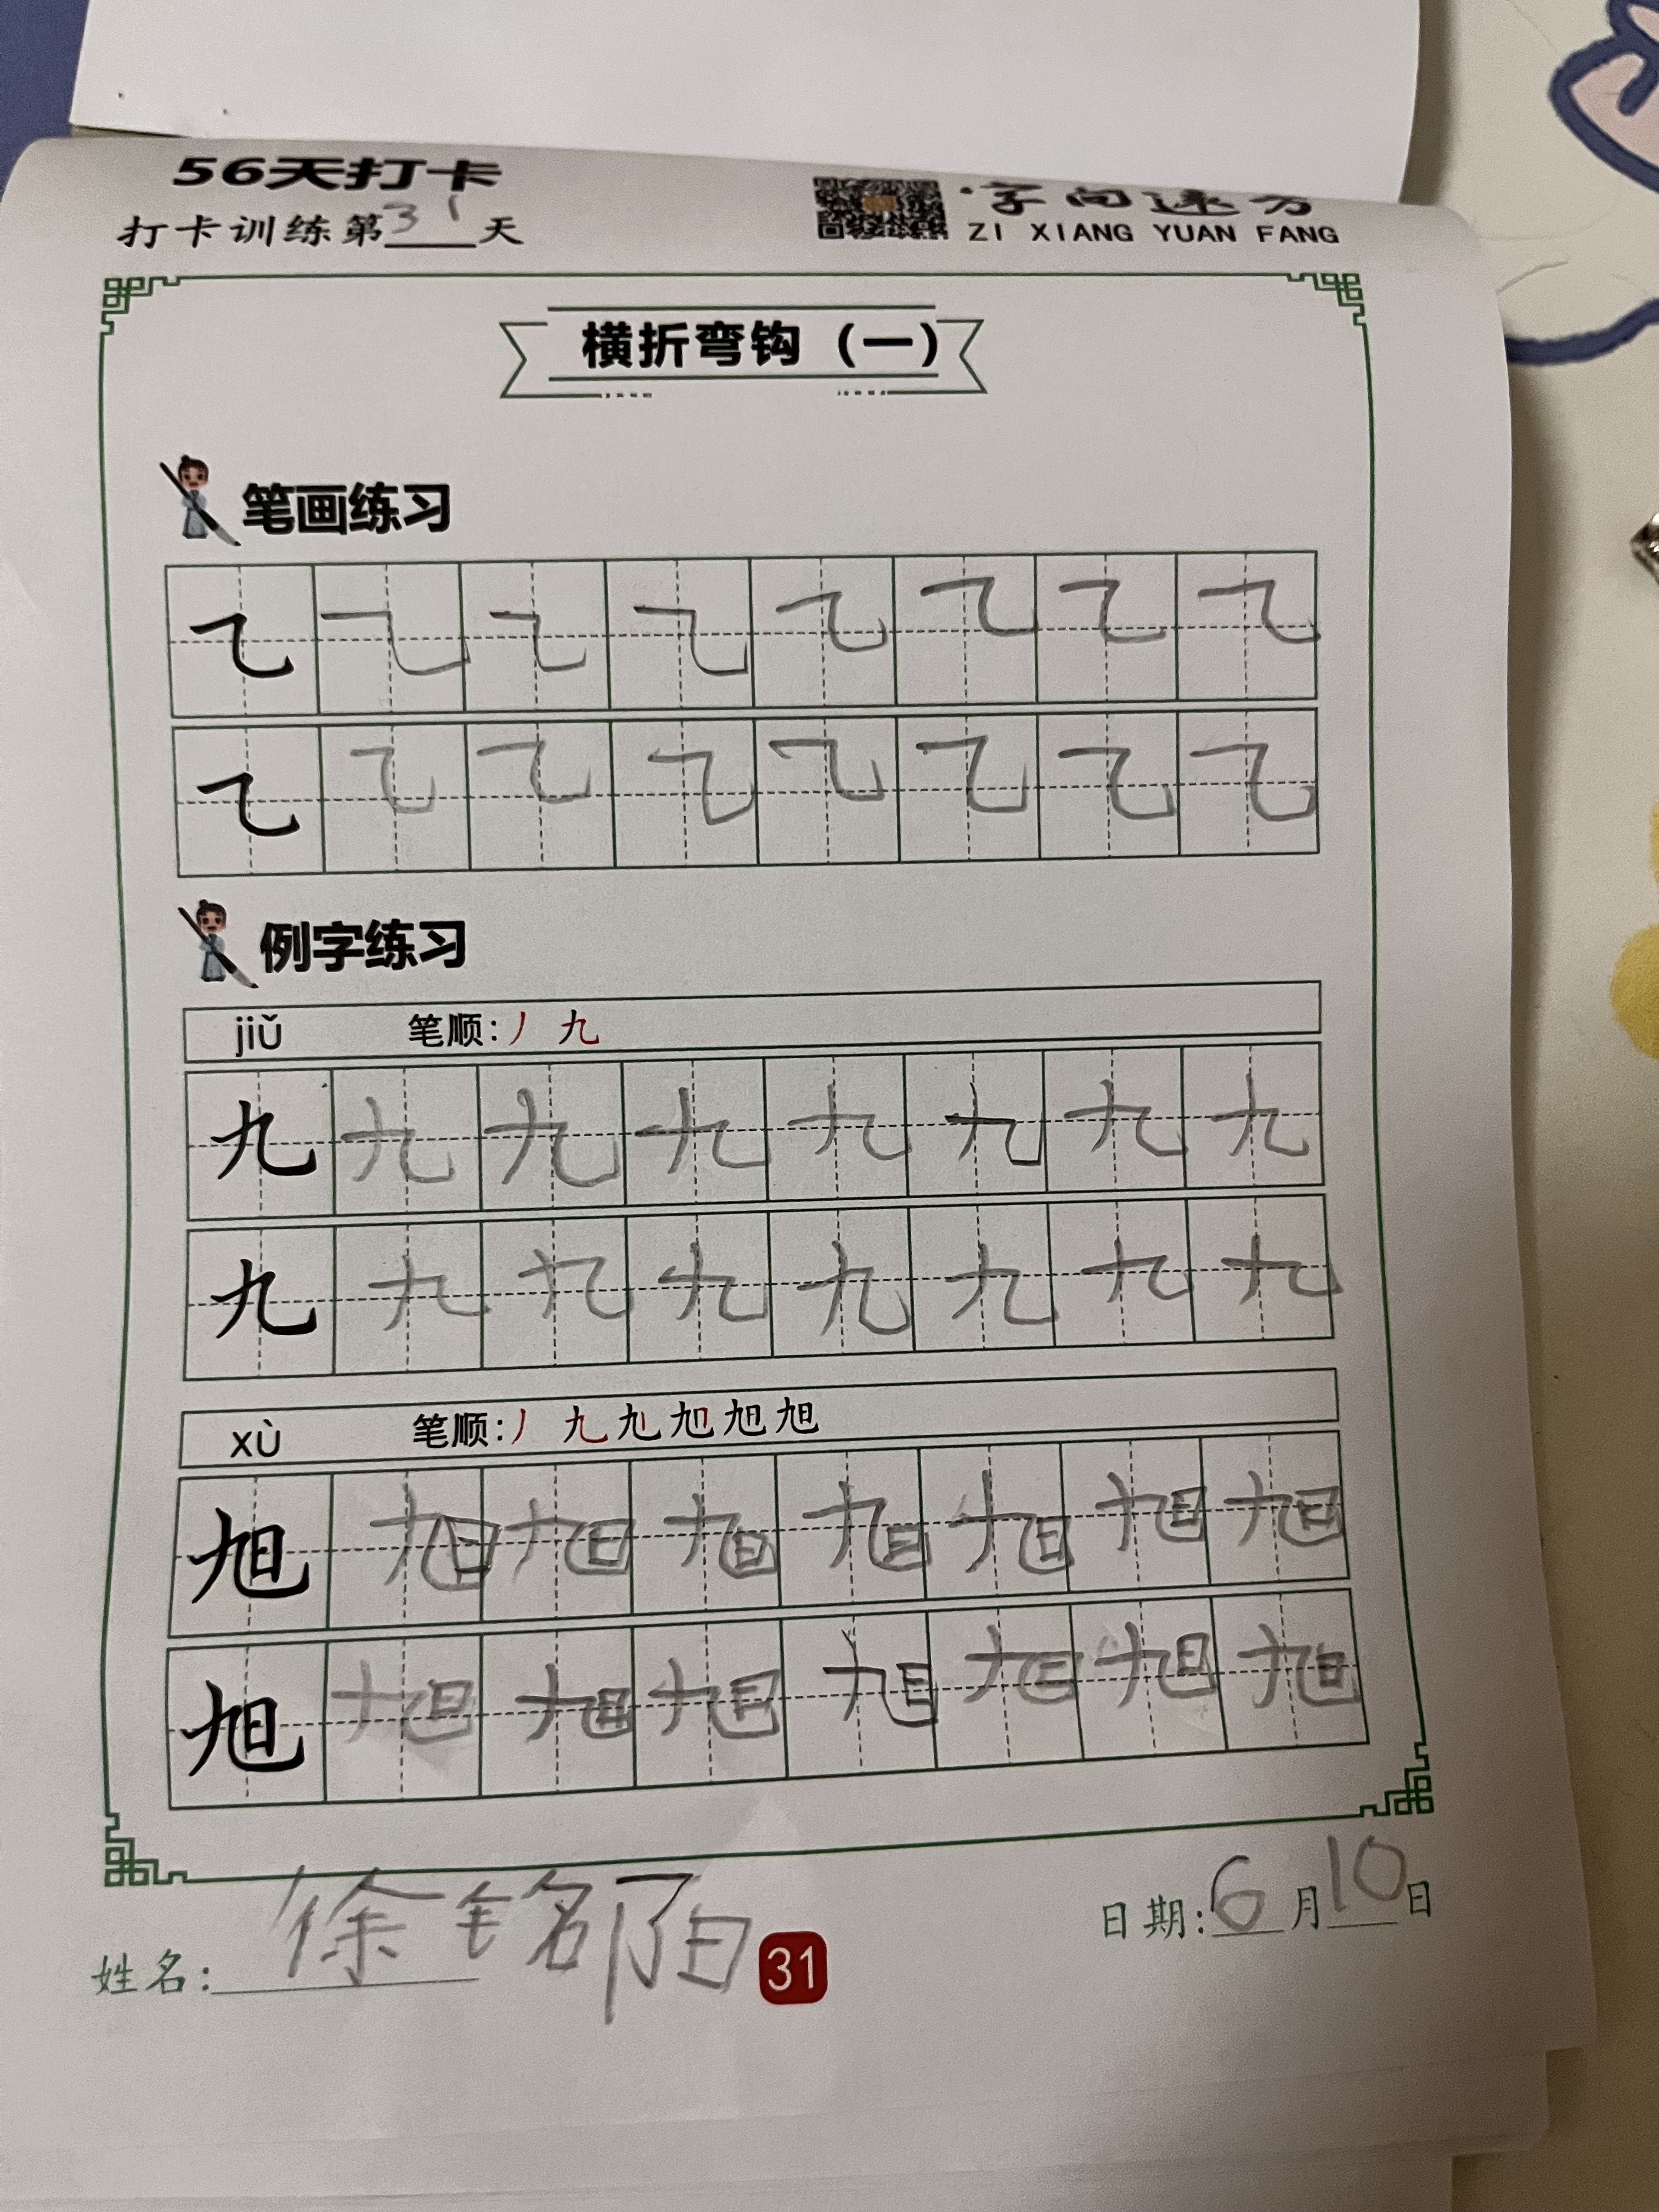 56天打卡
打卡训练第31天
·字向远方
ZI XIANG YUAN FANG
横折弯钩（一）
笔画练习
㇈ ㇈ ㇈ ㇈ ㇈ ㇈ ㇈ ㇈
㇈ ㇈ ㇈ ㇈ ㇈ ㇈ ㇈ ㇈
例字练习
jiǔ 笔顺：丿 九
九 九 九 九 九 九 九 九
九 九 九 九 九 九 九 九
xù 笔顺：丿 九 旭 旭 旭
旭 旭 旭 旭 旭 旭 旭 旭
旭 旭 旭 旭 旭 旭 旭 旭
姓名：徐铭阳
31
日期：6月10日